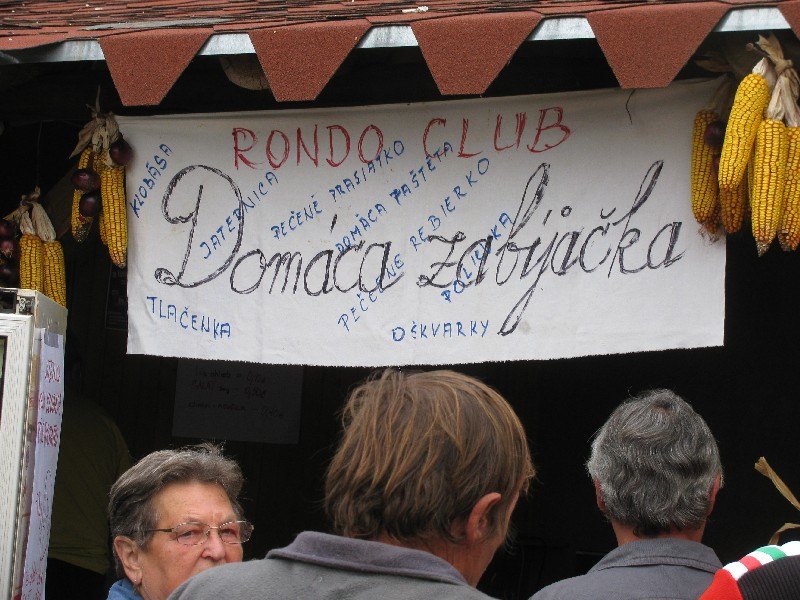 RONDO CLUB
Domáca zabíjačka
KLOBÁSA
JATERNICA
PEČENÉ PRASIATKO
DOMÁCA PAŠTÉTA
PEČENÉ REBIERKO
POLIEVKA
TLAČENKA
OŠKVARKY